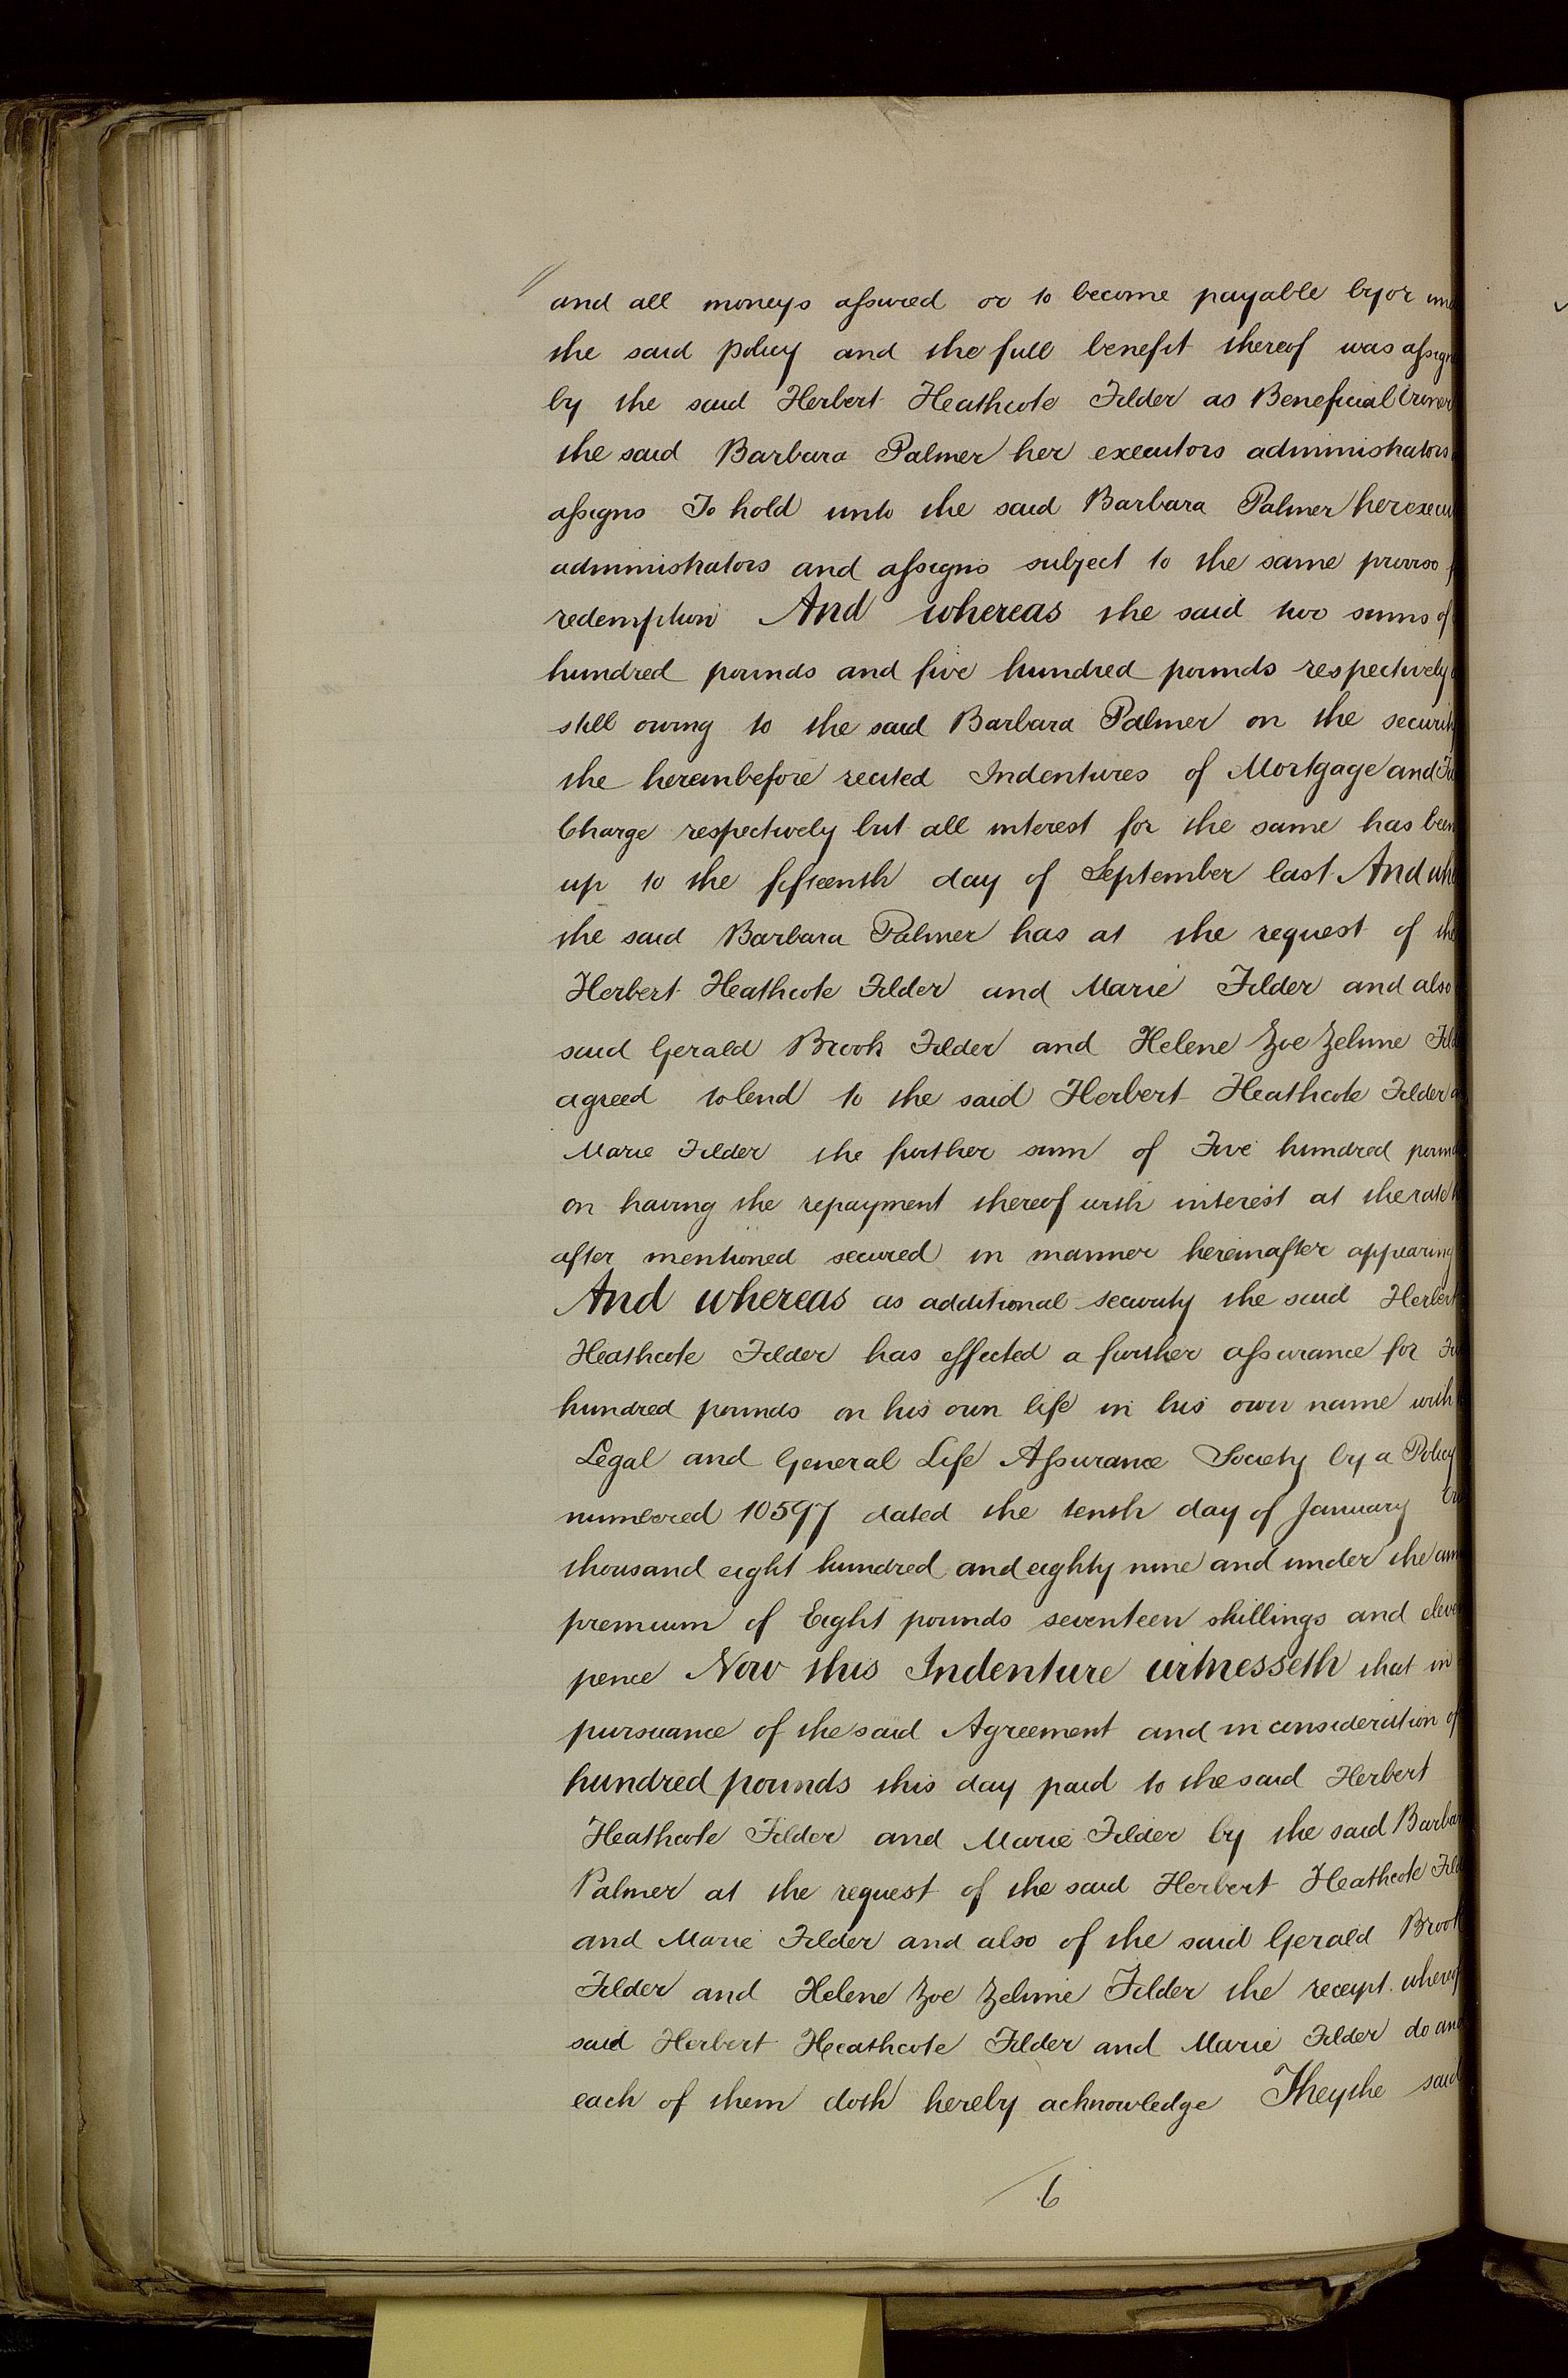 and all moneys assured or to become payable by or
the said policy and the full benefit thereof was
by the said Herbert Heathcote Filder as Beneficial Owner
the said Barbara Palmer her executors administrators
assigns To hold unto the said Barbara Palmer her
administrators and assigns subject to the same proviso
redemption And whereas the said two sums of
hundred pounds and five hundred pounds respectively
still owing to the said Barbara Palmer on the
the hereinbefore recited Indentures of Mortgage and
Charge respectively but all interest for the same has been
up to the fifteenth day of September last And
the said Barbara Palmer has at the request of the
Herbert Heathcote Filder and Marie Filder and also
said Gerald Brook Filder and Helene Zoe Zelime
agreed to lend to the said Herbert Heathcote Filder
Marie Filder the further sum of Five hundred
on having the repayment thereof with interest at the rate
after mentioned secured in manner hereinafter appearing
And whereas as additional security the said Herbert
Heathcote Filder has effected a further assurance for
hundred pounds on his own life in his own name with
Legal and General Life Assurance Society by a Policy
numbered 10597 dated the tenth day of January
thousand eight hundred and eighty nine and under the
premium of Eight pounds seventeen shillings and
pence Now this Indenture witnesseth that in
pursuance of the said Agreement and in consideration of
hundred pounds this day paid to the said Herbert
Heathcote Filder and Marie Filder by the said
Palmer at the request of the said Herbert Heathcote
and Marie Filder and also of the said Gerald Brook
Filder and Helene Zoe Zelime Filder the receipt
said Herbert Heathcote Filder and Marie Filder do and
each of them doth hereby acknowledge They the said
6